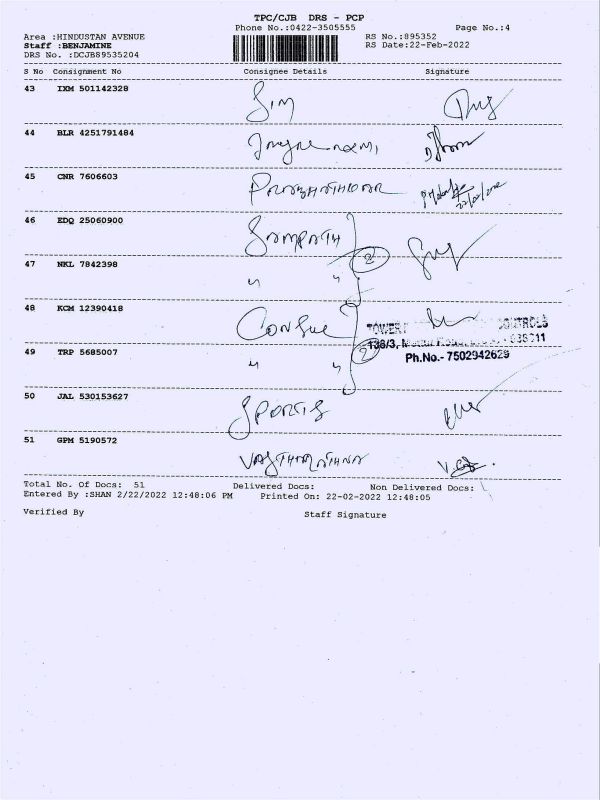 TPC/CJB DRS - PCP
Phone No.:0422-3505555 Page No.:4
Area :HINDUSTAN AVENUE RS No.:895352
Staff :BENJAMINE RS Date:22-Feb-2022
DRS No. :DCJB89535204
S No Consignment No Consignee Details Signature
43 IXM 501142328
44 BLR 4251791484
45 CNR 7606603
46 EDQ 25060900 Sampath
47 NKL 7842398 " " 2
48 KCM 12390418
49 TRP 5685007 " " 2
Ph.No.- 7502942629
50 JAL 530153627 Sports
51 GPM 5190572
Total No. Of Docs: 51 Delivered Docs: Non Delivered Docs:
Entered By :SHAN 2/22/2022 12:48:06 PM Printed On: 22-02-2022 12:48:05
Verified By Staff Signature